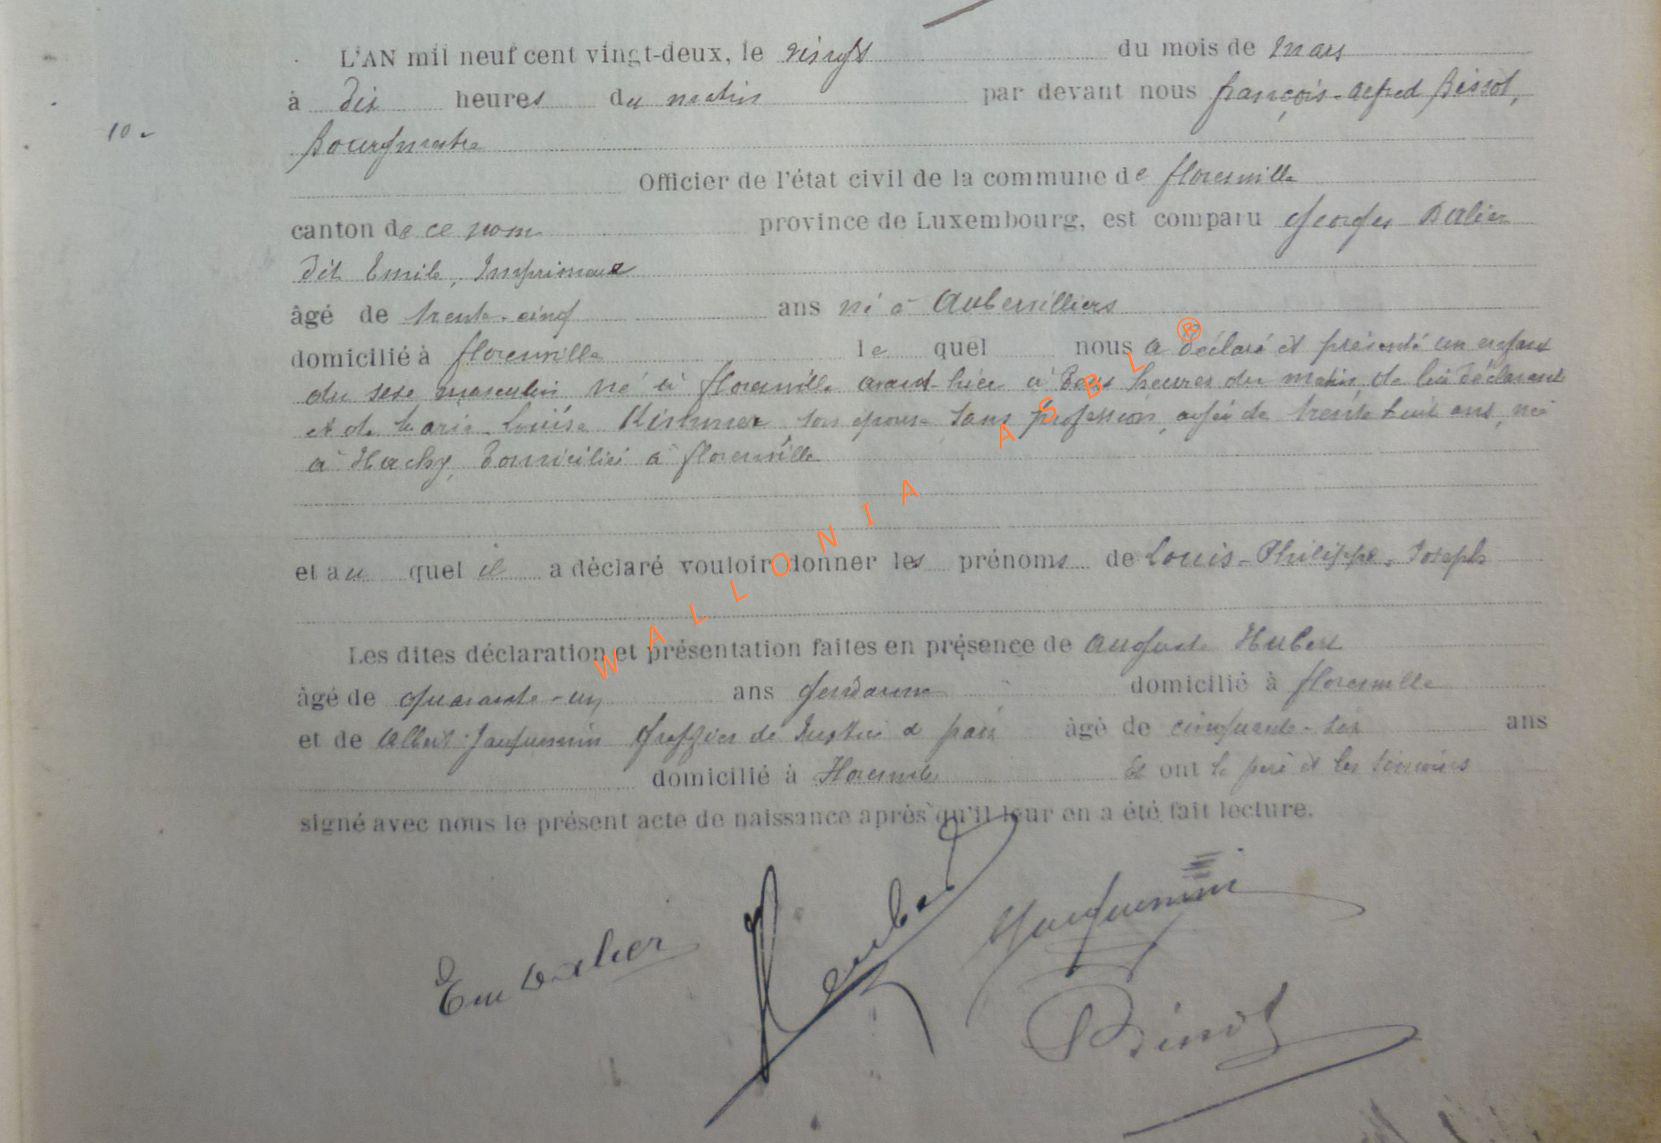 L'AN mil neuf cent vingt-deux, le vingt du mois de Mars
à dix heures du matin par devant nous François-Alfred Bissot,
10.-
Bourgmestre
Officier de l'état civil de la commune de Florenville
canton de ce nom province de Luxembourg, est comparu Georges
dit Emile, Imprimeur
âgé de trente-cinq ans né à Aubervilliers
domicilié à Florenville le quel nous a déclaré et présenté un enfant
du sexe masculin né à Florenville avant-hier à heures du matin, de lui déclarant
et de Marie-Louise son épouse sans profession, agée de trente huit ans, née
à Hachy, domiciliée à Florenville
et au quel il a déclaré vouloir donner les prénoms de Louis-Philippe-Joseph
Les dites déclaration et présentation faites en présence de Auguste Hubert
âgé de quarante-un ans gendarme domicilié à Florenville
et de Albert Jacquemin Greffier de Justice de paix âgé de cinquante-six ans
domicilié à Florenville Et ont le père et les témoins
signé avec nous le présent acte de naissance après qu'il leur en a été fait lecture.
Hubert
Jacquemin
Em
WALLONIA ASBL ®